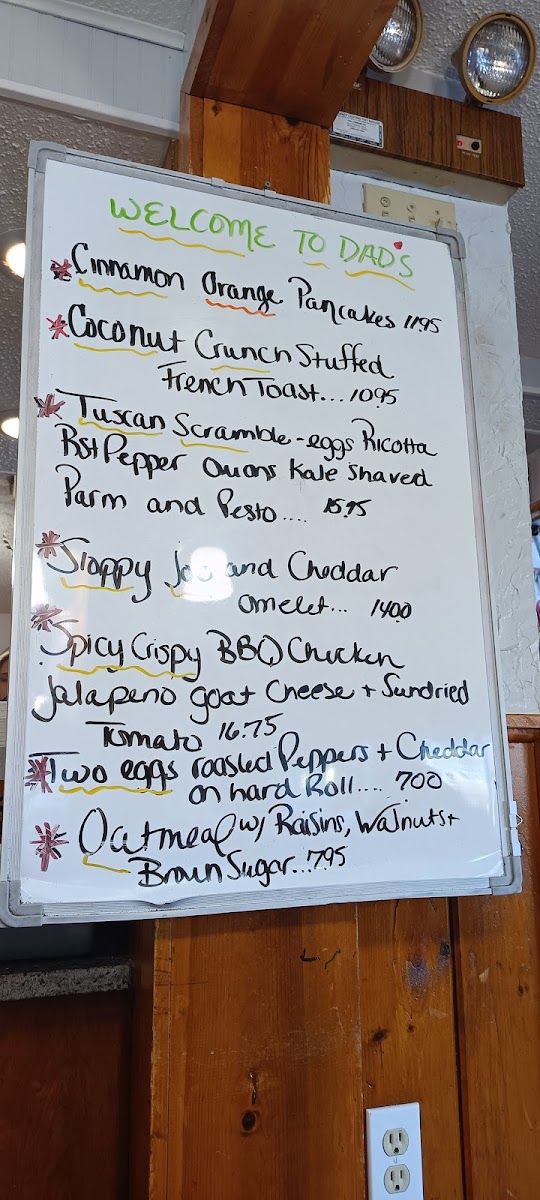 WELCOME TO DAD'S
*Cinnamon Orange Pancakes 1195
*Coconut Crunch Stuffed
French Toast...1095
*Tuscan Scramble-eggs Ricotta
Rst Pepper Onions Kale Shaved
Parm and Pesto.... 15.95
*Sloppy Joe and Cheddar
omelet... 1400
*Spicy Crispy BBQ Chicken
Jalapeno goat Cheese + Sundried
Tomato 16.75
*Two eggs roasted Peppers + Cheddar
on hard Roll.... 700
*Oatmeal w/ Raisins, Walnuts+
Brown Sugar...795